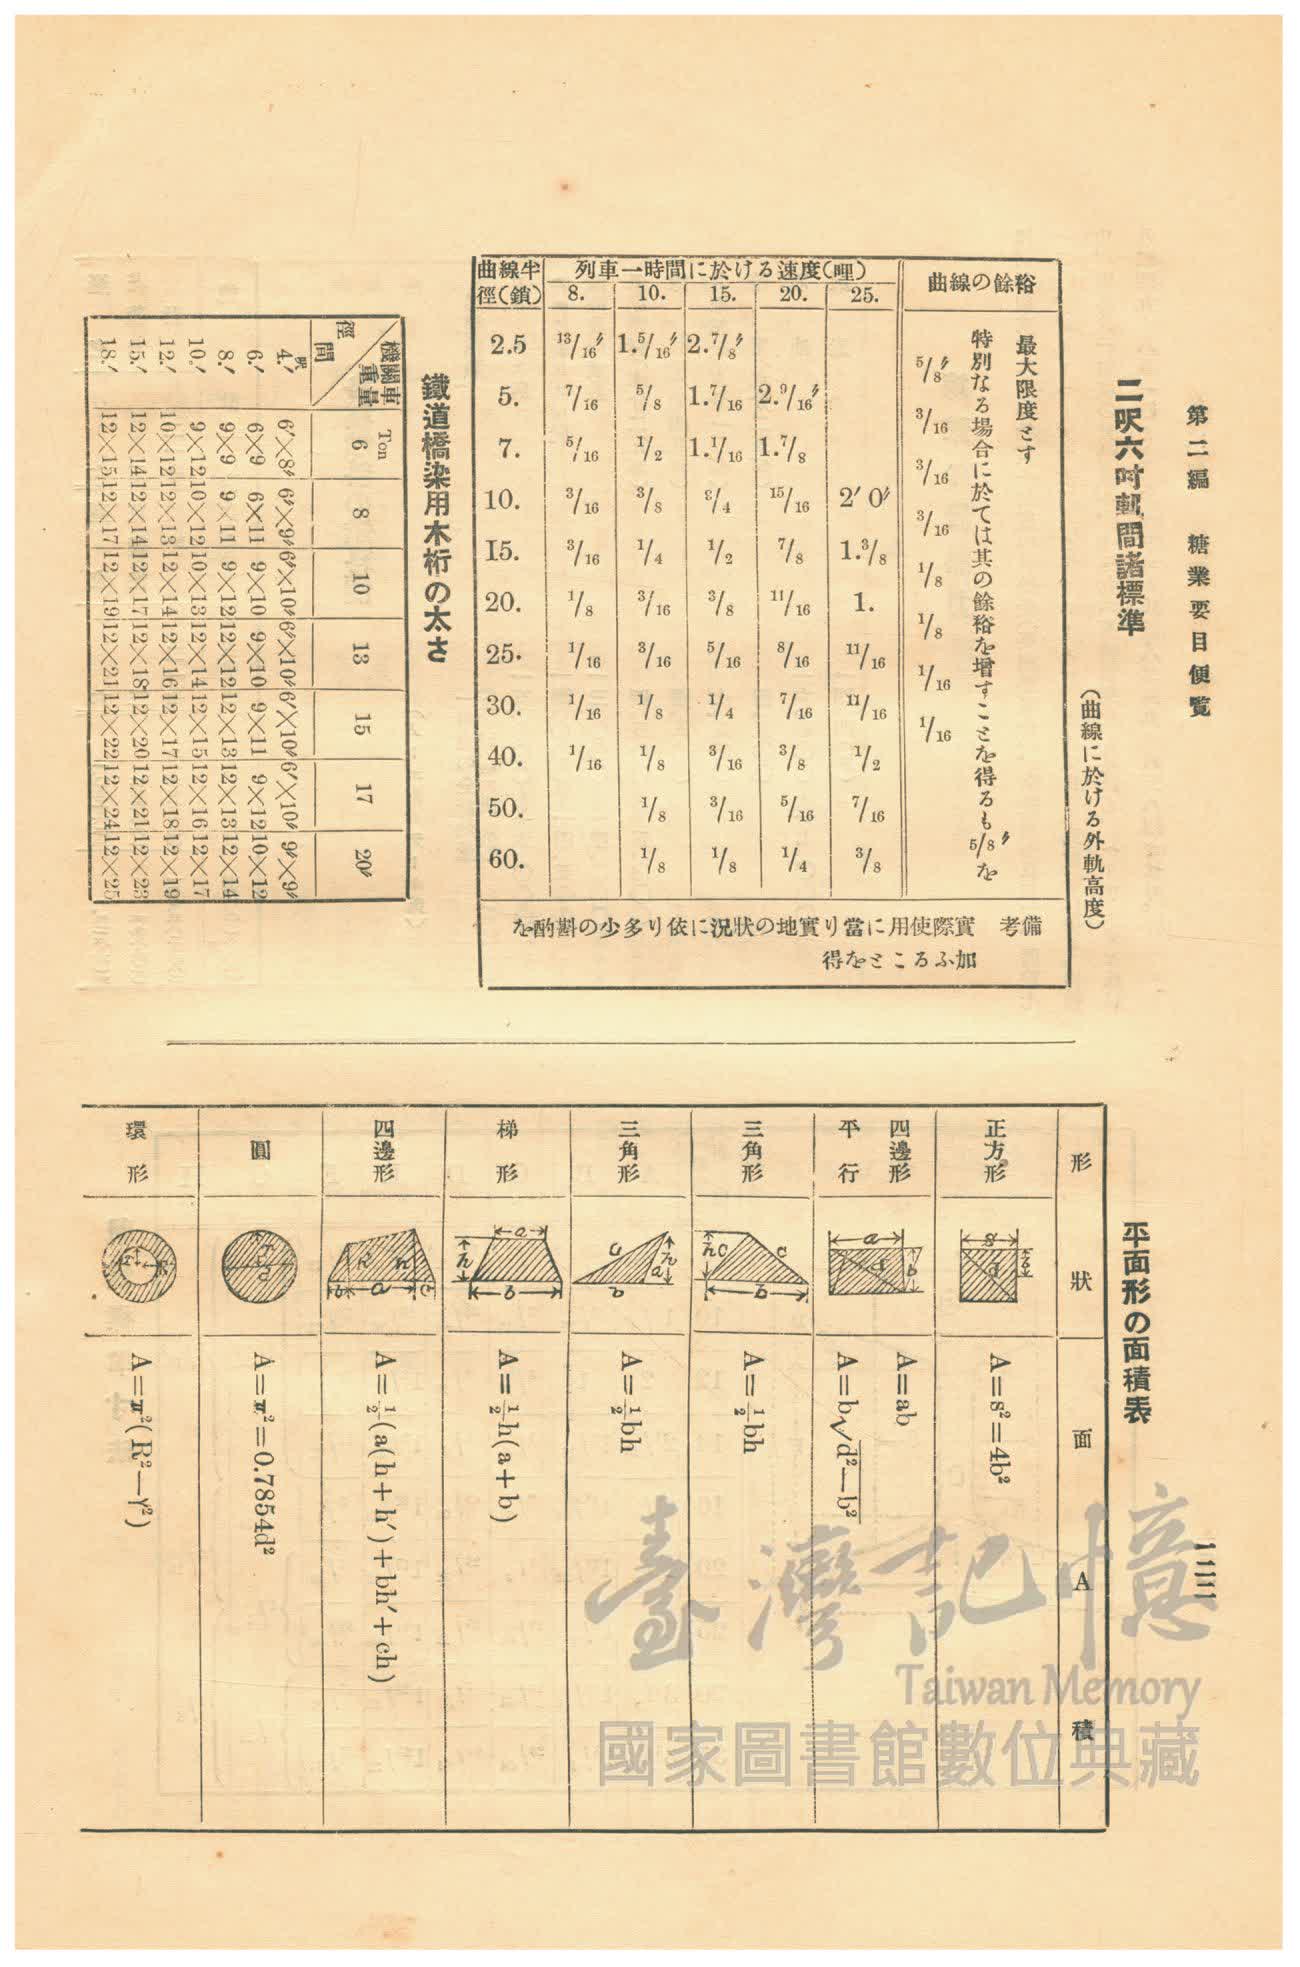 第二編 糖業要目便覽
一二二
二呎六吋軌間諸標準
(曲線に於ける外軌高度)
曲線半徑(鎖) 列車一時間に於ける速度(哩) 曲線の餘裕
8. 10. 15. 20. 25.
2.5 13/16″ 1.5/16″ 2.7/8″
5. 7/16 5/8 1.7/16 2.9/16″
7. 5/16 1/2 1.1/16 1.7/8
10. 3/16 3/8 3/4 15/16 2′ 0″
15. 3/16 1/4 1/2 7/8 1.3/8
20. 1/8 3/16 3/8 11/16 1.
25. 1/16 3/16 5/16 8/16 11/16
30. 1/16 1/8 1/4 7/16 11/16
40. 1/16 1/8 3/16 3/8 1/2
50. 1/8 3/16 5/16 7/16
60. 1/8 1/8 1/4 3/8
5/8″ 3/16 3/16 3/16 1/8 1/8 1/16 1/16
特別なる場合に於ては其の餘裕を增すことを得るも5/8″を
最大限度とす
備考 實際使用に當り實地の狀況に依り多少の斟酌を
加ふることを得
鐵道橋梁用木桁の太さ
機關車重量 徑間 Ton 6 8 10 13 15 17 20″
呎 4.′ 6″×8″ 6″×9″ 6″×10″ 6″×10″ 6″×10″ 6″×10″ 9″×9″
6.′ 6×9 6×11 9×10 9×10 9×11 9×12 10×12
8.′ 9×9 9×11 9×12 12×12 12×13 12×13 12×14
10.′ 9×12 10×12 10×13 12×14 12×15 12×16 12×17
12.′ 10×12 12×13 12×14 12×16 12×17 12×18 12×19
15.′ 12×14 12×14 12×17 12×18 12×20 12×21 12×23
18.′ 12×15 12×17 12×19 12×21 12×22 12×24 12×25
平面形の面積表
形狀 面A積
正方形 s d b A=s²=4b²
平行四邊形 a d b A=ab
A=b√d²−b²
三角形 h c c b A=½bh
三角形 c h a b A=½bh
梯形 a h b A=½h(a+b)
四邊形 h h b a c A=½(a(h+h′)+bh′+ch)
圓 r d A=π²=0.7854d²
環形 r R A=π²(R²−γ²)
臺灣記憶
Taiwan Memory
國家圖書館數位典藏